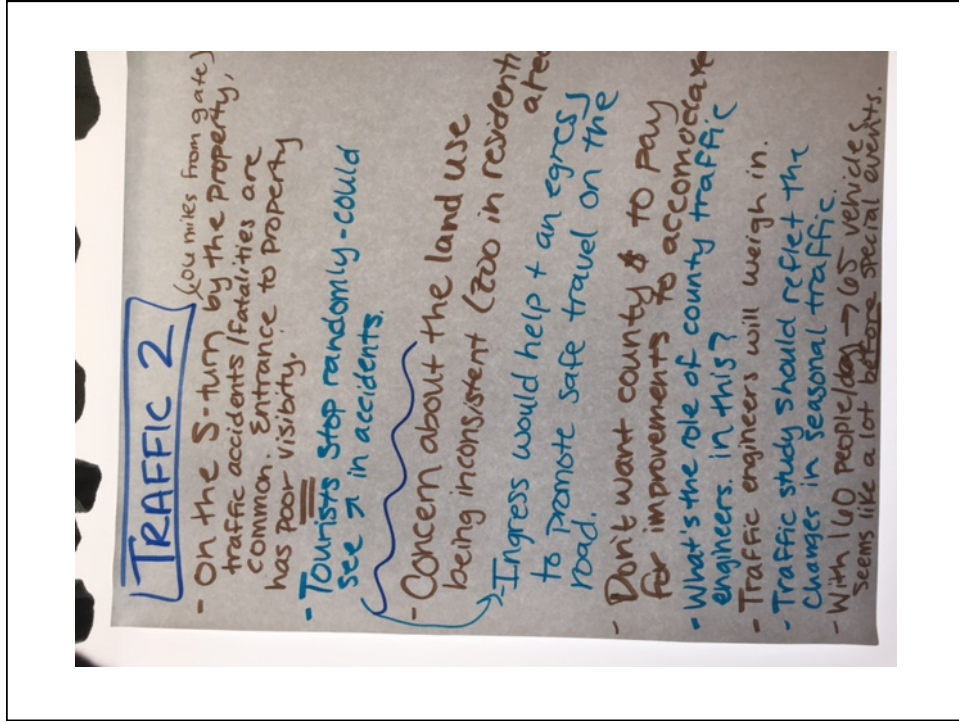 TRAFFIC 2
(ou miles from gate)
- On the S-turn by the property,
traffic accidents/fatalities are
common. Entrance to property
has poor visibility.
- Tourists stop randomly - could
see ↗ in accidents.
- Concern about the land use
being inconsistent (zoo in residenti
area
- Ingress would help + an egress
to promote safe travel on the
road.
- Don't want county $ to pay
for improvements to accomodate
- What's the role of county traffic
engineers. in this?
- Traffic engineers will weigh in.
- Traffic study should reflet the
changes in seasonal traffic.
- With 160 people/day → 65 vehicles
seems like a lot before special events.